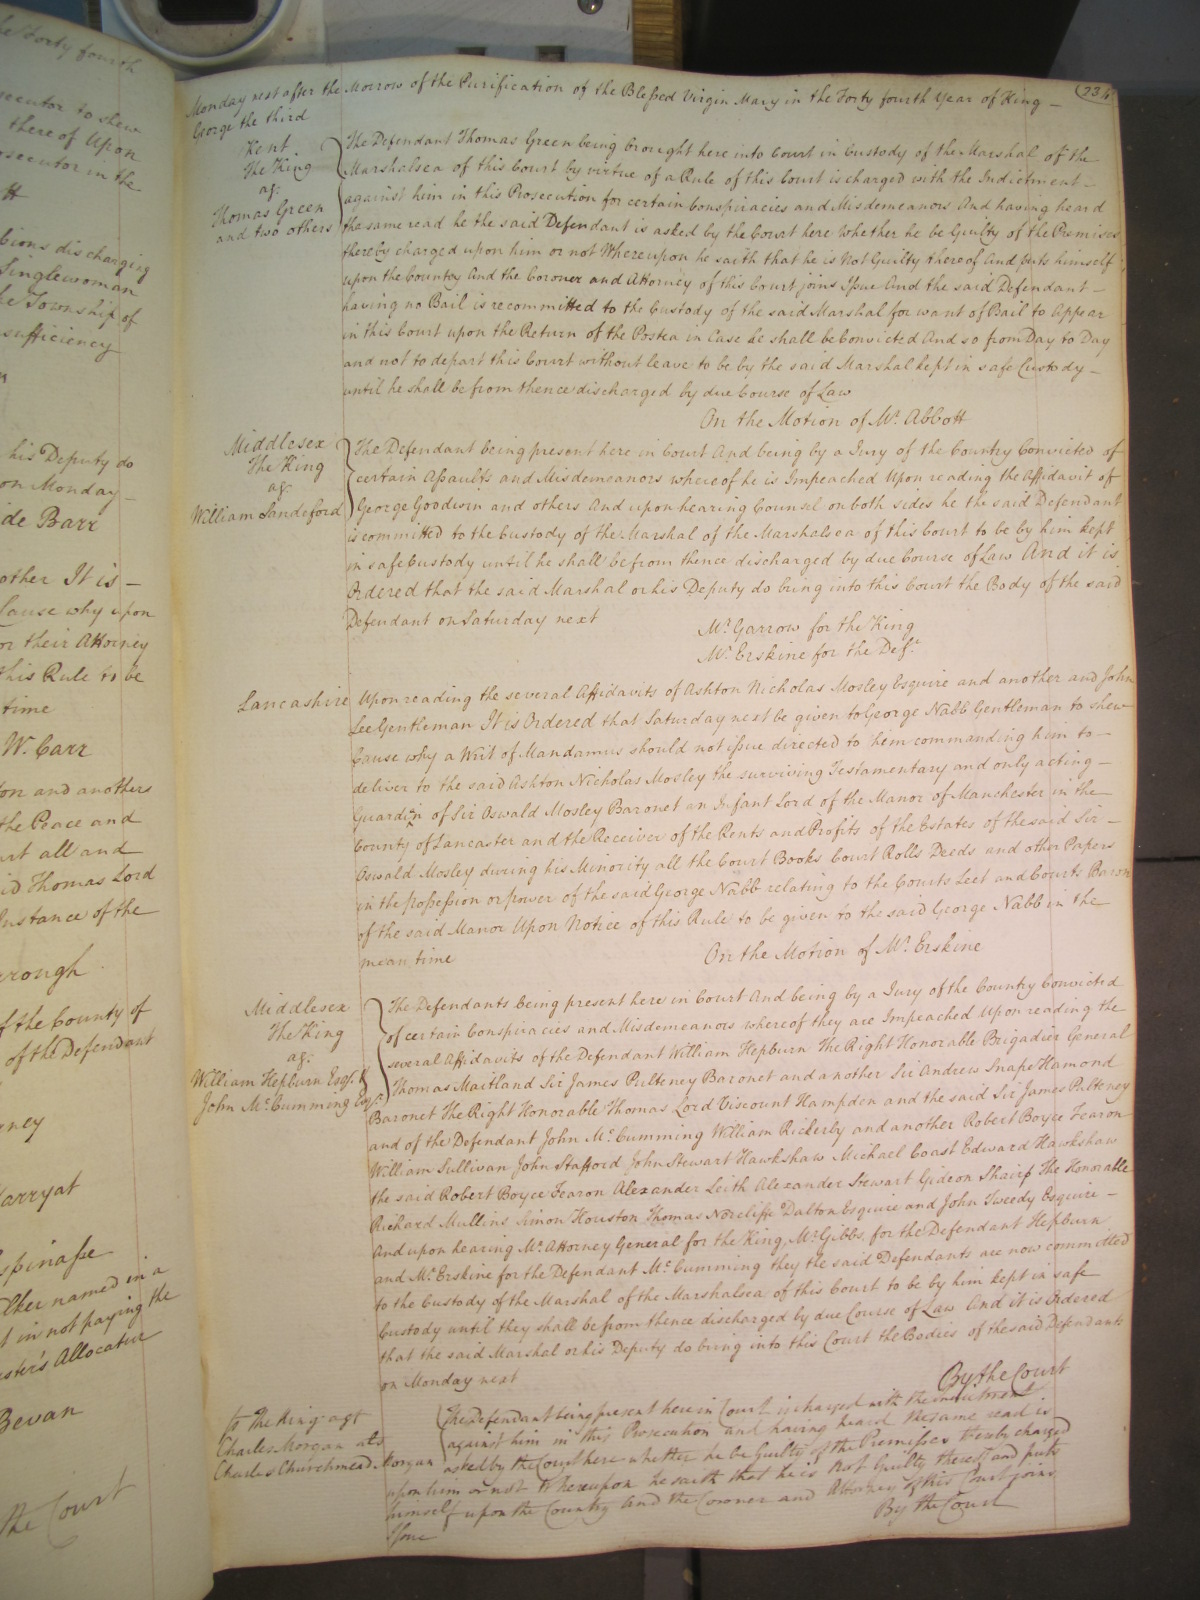 he Forty fourth
secutor to shew
thereof Upon
osecutor in the
tt
bions discharging
Singlewoman
he Township of
sufficiency
his Deputy do
on Monday
de Barr
other It is
Cause why upon
or their Attorney
this Rule to be
time
W. Carr
ton and anothers
the Peace and
art all and
id Thomas Lord
Instance of the
rrough
f the County of
of the Defendant
ney
arryat
spinasse
lker named in a
t in not paying the
ster's Allocatur
Bevan
the Court
Monday next after the Morrow of the Purification of the Blessed Virgin Mary in the Forty fourth Year of King
George the third
Kent
The King
ag:
Thomas Green
and two others
The Defendant Thomas Green being brought here into Court in Custody of the Marshal of the
Marshalsea of this Court by virtue of a Rule of this Court is charged with the Indictment
against him in this Prosecution for certain Conspiracies and Misdemeanors And having heard
the same read he the said Defendant is asked by the Court here whether he be Guilty of the Premises
thereby charged upon him or not Whereupon he saith that he is Not Guilty thereof And puts himself
upon the Country And the Coroner and Attorney of this Court joins Issue And the said Defendant
having no Bail is recommitted to the Custody of the said Marshal for want of Bail to Appear
in this Court upon the Return of the Postea in Case he shall be Convicted And so from Day to Day
and not to depart this Court without leave to be by the said Marshal kept in safe Custody
until he shall be from thence discharged by due Course of Law
On the Motion of Mr. Abbott
Middlesex
The King
ag:
William Sandeford
The Defendant being present here in Court And being by a Jury of the Country Convicted of
certain Assaults and Misdemeanors whereof he is Impeached Upon reading the Affidavit of
George Goodwin and others And upon hearing Counsel on both sides he the said Defendant
is committed to the Custody of the Marshal of the Marshalsea of this Court to be by him kept
in safe Custody until he shall be from thence discharged by due Course of Law And it is
Ordered that the said Marshal or his Deputy do bring into this Court the Body of the said
Defendant on Saturday next
Mr. Garrow for the King
Mr. Erskine for the Deft.
Lancashire
Upon reading the several Affidavits of Ashton Nicholas Mosley Esquire and another and John
Lee Gentleman It is Ordered that Saturday next be given to George Nabb Gentleman to shew
Cause why a Writ of Mandamus should not issue directed to him commanding him to
deliver to the said Ashton Nicholas Mosley the surviving Testamentary and only acting
Guardian of Sir Oswald Mosley Baronet an Infant Lord of the Manor of Manchester in the
County of Lancaster and the Receiver of the Rents and Profits of the Estates of the said Sir
Oswald Mosley during his Minority all the Court Books Court Rolls Deeds and other Papers
in the possession or power of the said George Nabb relating to the Courts Leet and Courts Baron
of the said Manor Upon Notice of this Rule to be given to the said George Nabb in the
mean time
On the Motion of Mr. Erskine
Middlesex
The King
ag:
William Hepburn Esqr. &
John McCumming Esqr.
The Defendants being present here in Court And being by a Jury of the Country Convicted
of certain Conspiracies and Misdemeanors whereof they are Impeached Upon reading the
several Affidavits of the Defendant William Hepburn The Right Honorable Brigadier General
Thomas Maitland Sir James Pulteney Baronet and another Sir Andrew Snape Hamond
Baronet The Right Honorable Thomas Lord Viscount Hampden and the said Sir James Pulteney
and of the Defendant John McCumming William Rickerly and another Robert Boyce Fearon
William Sullivan John Stafford John Stewart Hawkshaw Michael Coast Edward Hawkshaw
the said Robert Boyce Fearon Alexander Leith Alexander Stewart Gideon Shairp The Honorable
Richard Mullins Simon Houston Thomas Norcliffe Dalton Esquire and John Tweedy Esquire
And upon hearing Mr. Attorney General for the King, Mr. Gibbs, for the Defendant Hepburn
and Mr. Erskine for the Defendant McCumming they the said Defendants are now committed
to the Custody of the Marshal of the Marshalsea of this Court to be by him kept in safe
Custody until they shall be from thence discharged by due Course of Law And it is Ordered
that the said Marshal or his Deputy do bring into this Court the Bodies of the said Defendants
on Monday next
By the Court
The King agt
Charles Morgan als
Charles Churchmead Morgan
The Defendant being present here in Court is charged with the Indictment
against him in this Prosecution and having heard the same read is
asked by the Court here whether he be Guilty of the Premisses thereby charged
upon him or not Whereupon he saith that he is Not Guilty thereof and puts
himself upon the Country And the Coroner and Attorney of this Court joins
Issue
By the Court